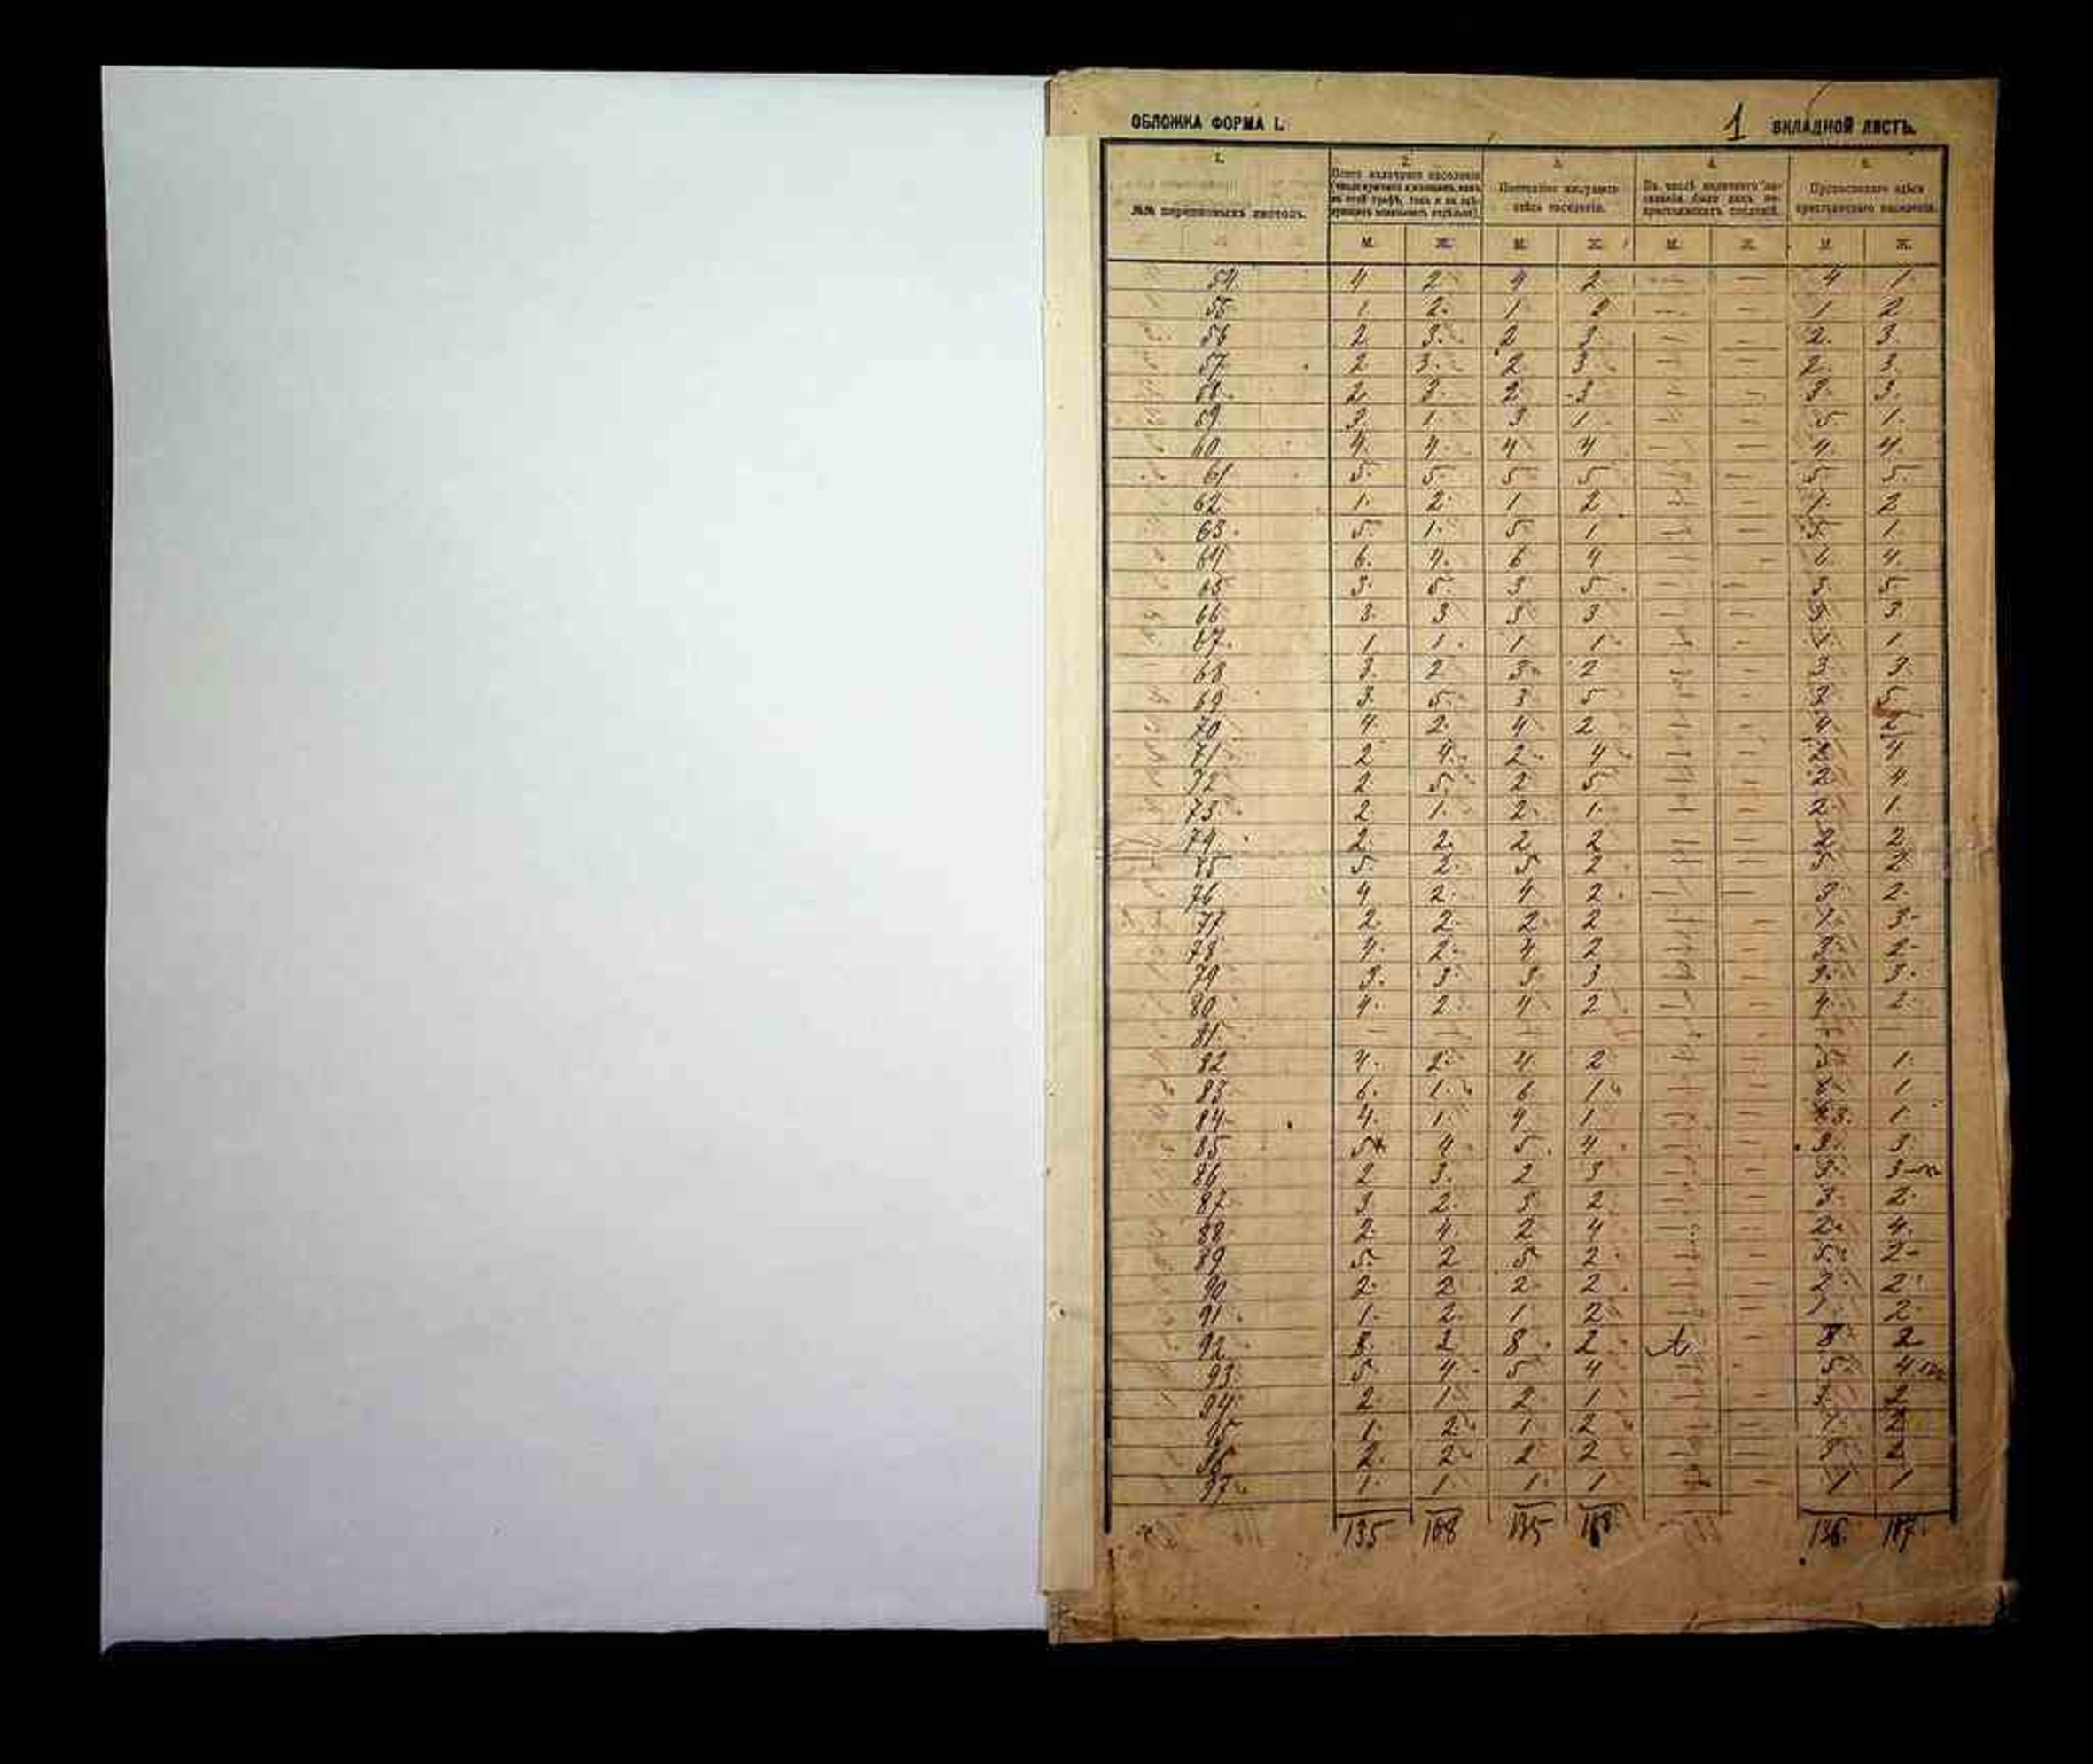 ОБЛОЖКА ФОРМА I. 1 ВКЛАДНОЙ ЛИСТЪ.
1. 2. 3. 4. 5.
Всего наличнаго населенія
Постоянно живущаго здѣсь населенія.
№№ переписныхъ листовъ.
М. Ж. М. Ж. М. Ж. М. Ж.
54. 4 2 4 2 — — 4 1.
55 1 2. 1 2 — — 1 2
56 2 3. 2 3 — — 2. 3.
57 2 3. 2 3. — — 2. 3.
58. 2 3. 2 3 — — 3. 3.
59 3. 1. 3 1. — — 1.
60 4. 4. 4 4 — — 4. 4.
61 5. 5. 5 5 — — 5. 5.
62 1. 2. 1 2 — — 1. 2
63. 5. 1. 5 1. — — 5. 1.
64 6. 4. 6 4 — — 6. 4.
65 3. 5. 3 5. — — 3. 5.
66 3. 3 3 3 — — 3 3
67. 1 1. 1 1 — — 1. 1.
68 3. 2 3 2 — — 3 3.
69 3. 5. 3 5 — — 3 5.
70 4. 2. 4 2 — — 4 2
71 2 4. 2 4 — — 2 4
72 2 5. 2 5 — — 2 4.
73. 2 1. 2. 1. — — 2. 1.
74. 2. 2. 2 2 — — 2 2.
75 5. 2. 5 2 — — 5. 2
76 4 2. 4 2. — — 3. 2.
77 2. 2. 2 2 — — 1. 3-
78 4. 2. 4 2 — — 3. 2-
79 3. 3 3 3 — — 3. 3.
80 4. 2 4 2 — — 4. 2.
81. — — — — — — — —
82 4. 2. 4. 2 — — 3 1.
83 6. 1. 6 1 — — 1
84. 4. 1. 4 1 — — 3. 1.
85 5 4 5. 4 — — 3. 3.
86 2 3. 2 3 — — 3. 3
87. 3. 2. 3 2. — — 3. 2.
88 2. 4. 2 4 — — 2. 4.
89 5. 2 5 2 — — 5. 2-
90 2. 2. 2. 2. — — 2. 2.
91. 1. 2. 1 2 — — 1. 2.
92. 8. 2 8. 2. — 8 2
93. 5. 4. 5 4 — — 5. 4
94. 2. 1 2. 1 3. 2
95 1. 2. 1 2 — — 1. 2
96 2. 2 2 2 — — 3 2
97. 1. 1. 1. 1 — — 1 1
135. 108 135 108. 136. 107.